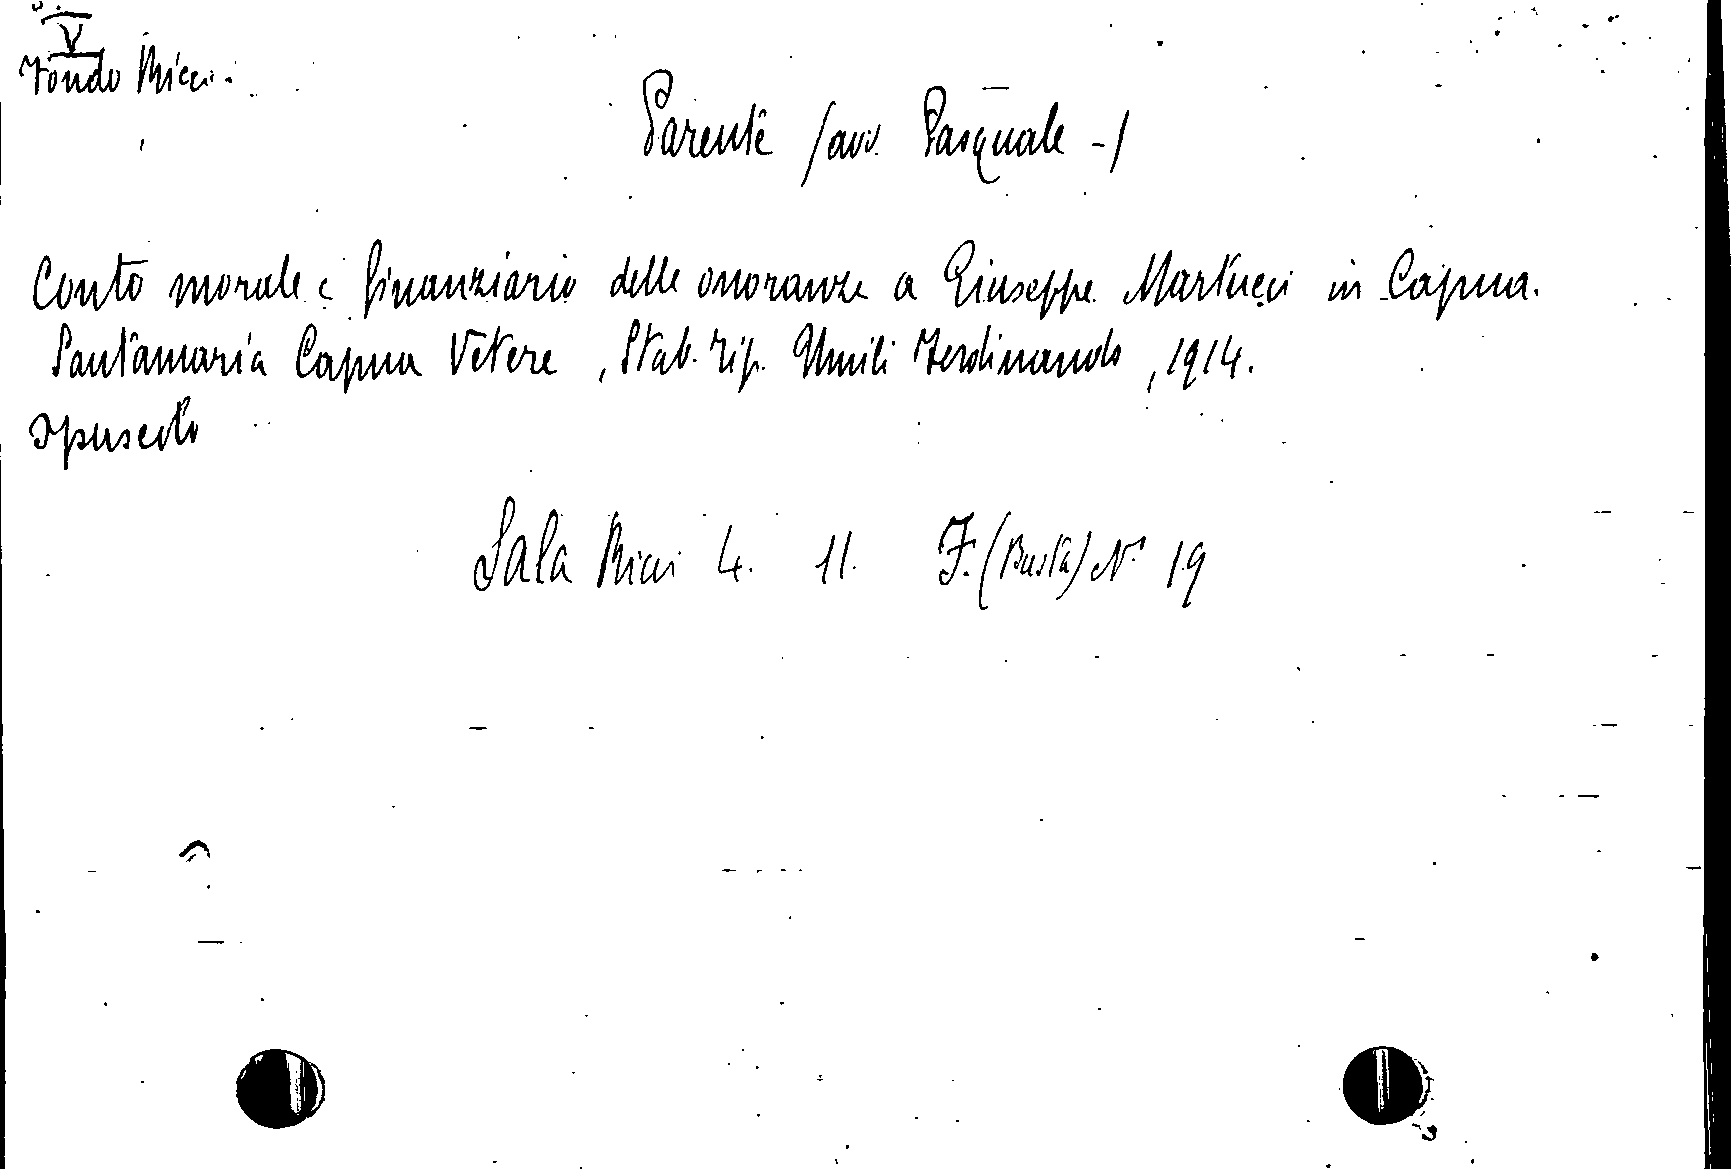 V
Fondo Ricci.
Parente (avv. Pasquale -)
Conto morale e finanziario delle onoranze a Giuseppe Martucci in Capua.
Santamaria Capua Vetere, Stab. Tip. Umili Ferdinando, 1914.
opuscolo
Sala Ricci 4. 11. F. (Busta) N° 19